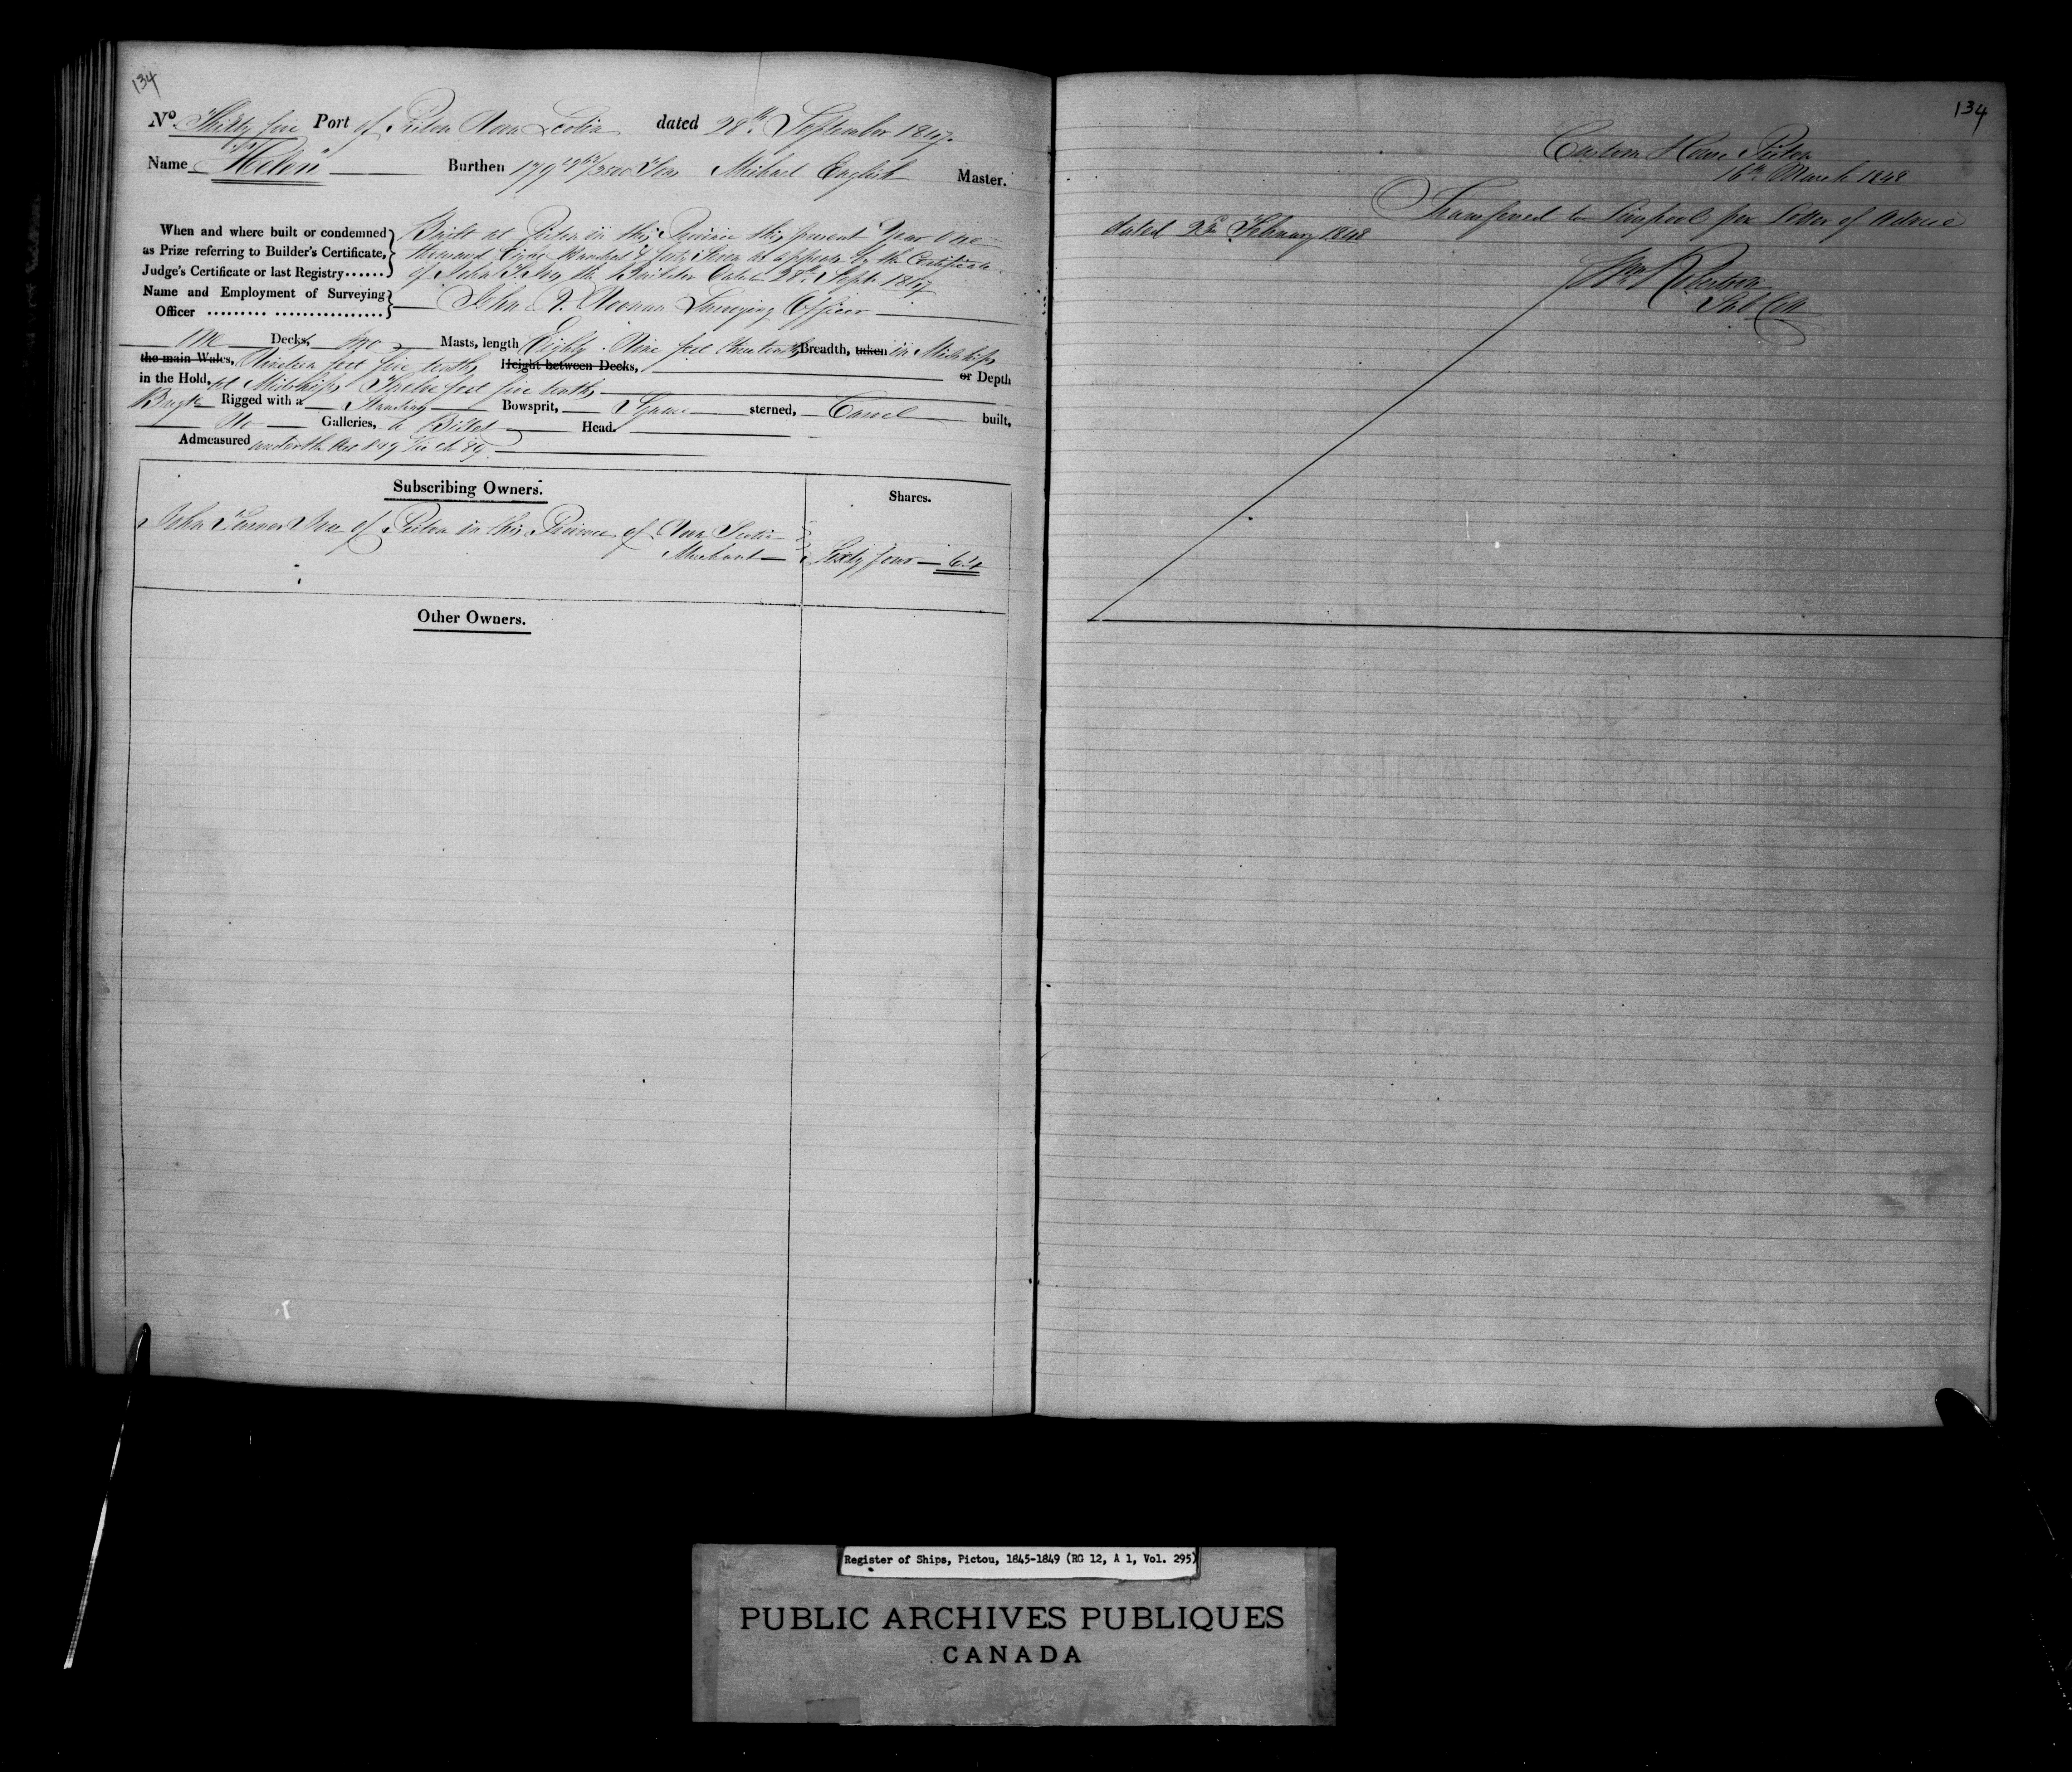 134
No. Thirty five Port of Pictou Nova Scotia dated 28th September 1847.
Name "Helen" Burthen 179 1962/3500 Tons Michael English Master.
When and where built or condemned
as Prize referring to Builder's Certificate,
Judge's Certificate or last Registry......
Built at Pictou in this Province this present Year One
thousand Eight Hundred & forty Seven as appears by the Certificate
of John the Builder dated 28th Septr. 1847
Name and Employment of Surveying
Officer ......... ................
John Noonan Surveying Officer
One Decks, two Masts, length Eighty Nine feet tenths Breadth, taken in Midships
the main Wales, Nineteen feet five tenths Height between Decks, or Depth
in the Hold, at Midships Twelve feet five tenths
Brigt. Rigged with a Standing Bowsprit, Square sterned, Carvel built,
No Galleries, a Billet Head.
Admeasured under the Act 8 & 9 Vic Ch 89.
Subscribing Owners. Shares.
John of Pictou in this Province of Nova Scotia
Merchant Sixty four 64
Other Owners.
134
Custom House Pictou
16th March 1848
Transferred to Liverpool per Letter of Advice
dated February 1848
Wm Robertson
Sub Coll
Register of Ships, Pictou, 1845-1849 (RG 12, A 1, Vol. 295)
PUBLIC ARCHIVES PUBLIQUES
CANADA